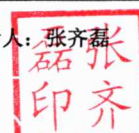 人：张齐磊
张齐
磊印